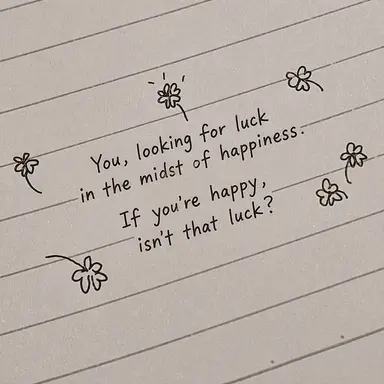 You, looking for luck
in the midst of happiness.
If you're happy,
isn't that luck?